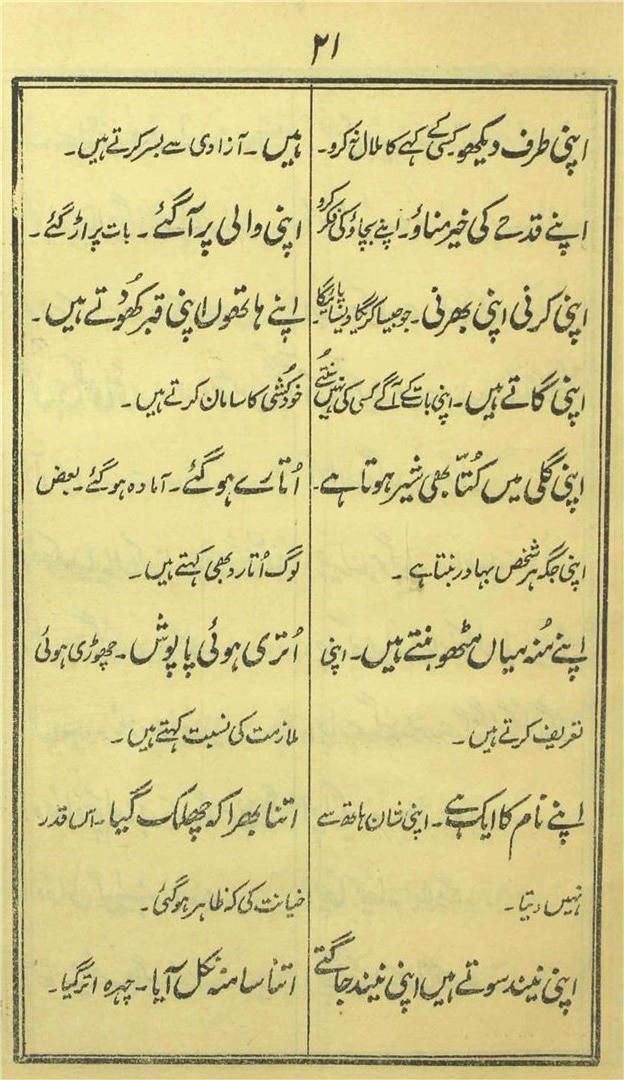 ۲۱
اپنی طرف دیکھو کسی کے کہے کا ملال نہ کرو۔
اپنے قدح کی خیر مناؤ۔ اپنے بچاؤ کی فکر کرو
اپنی کرنی اپنی بھرنی۔ جو جیسا کریگا ویسا پائیگا۔
اپنی گاتے ہیں۔ اپنی بات کے آگے کسی کی نہیں سنتے
اپنی گلی میں کُتّا بھی شیر ہوتا ہے۔
اپنی جگہ ہر شخص بہادر بنتا ہے۔
اپنے مُنہ میاں مٹھو بنتے ہیں۔ اپنی
تعریف کرتے ہیں۔
اپنے نام کا ایک ہے۔ اپنی شان ہاتھ سے
نہیں دیتا۔
اپنی نیند سوتے ہیں اپنی نیند جاگتے
ہیں۔ آزادی سے بسر کرتے ہیں۔
اپنی والی پر آ گئے۔ بات پر اڑ گئے۔
اپنے ہاتھوں اپنی قبر کھُودتے ہیں۔
خودکُشی کا سامان کرتے ہیں۔
اُتارے ہو گئے۔ آمادہ ہو گئے۔ بعض
لوگ اُتارو بھی کہتے ہیں۔
اُتری ہوئی پاپوش۔ چھوڑی ہوئی
ملازمت کی نسبت کہتے ہیں۔
اتنا بھرا کہ چھلک گیا۔ اس قدر
خیانت کی کہ ظاہر ہو گئی۔
اتنا سا منہ نکل آیا۔ چہرہ اتر گیا۔